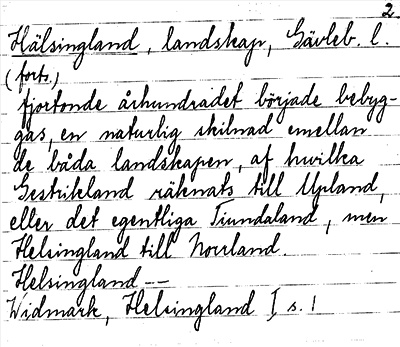 2.
Hälsingland, landskap, Gävleb. l.
(forts.)
fjortonde århundradet började bebyg-
gas, en naturlig skilnad emellan
de båda landskapen, af hvilka
Gestrikland räknats till Upland,
eller det egentliga Tiundaland, men
Helsingland till Norrland.
Helsingland --
Widmark, Helsingland I s. 1